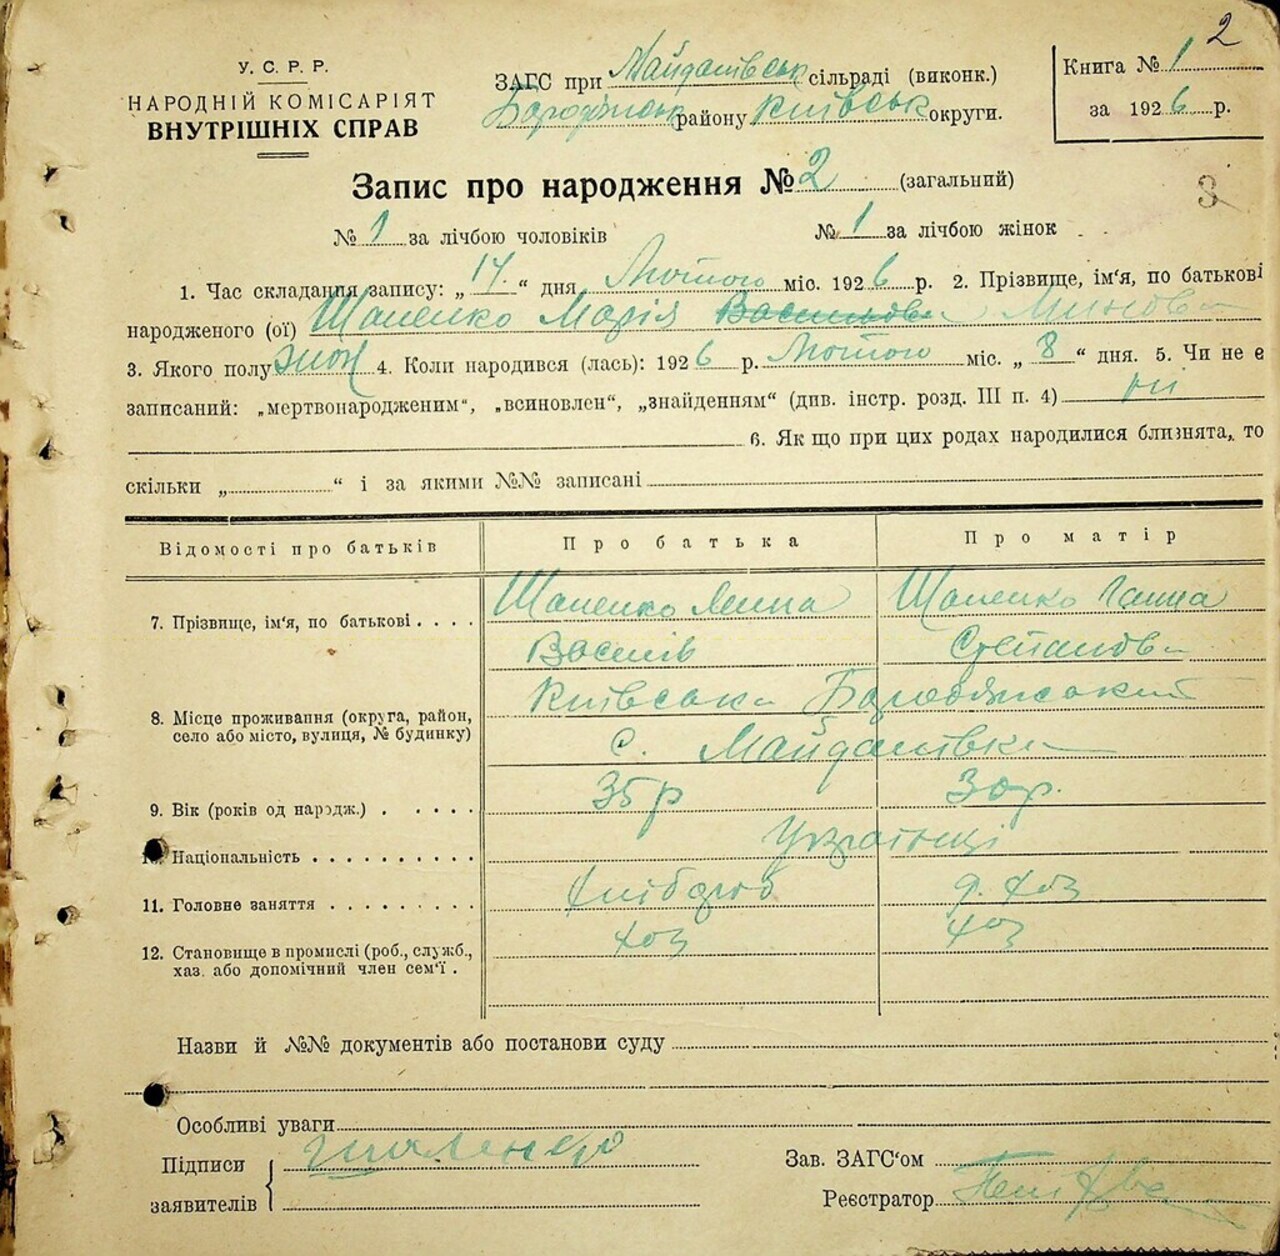 2
У. С. Р. Р.
НАРОДНІЙ КОМІСАРІЯТ
ВНУТРІШНІХ СПРАВ
ЗАГС при Майданівськ сільраді (виконк.)
Бородянськ району Київськ округи.
Книга № 1
за 1926 р.
Запис про народження № 2 (загальний)
3
№ 1 за лічбою чоловіків № 1 за лічбою жінок
1. Час складання запису: „ 14. “ дня Лютого міс. 1926 р. 2. Прізвище, ім‘я, по батькові
народженого (ої) Шаленко Марія
3. Якого полу жін 4. Коли народився (лась): 1926 р. Лютого міс. „ 8 “ дня. 5. Чи не є
записаний: „мертвонародженим“, „всиновлен“, „знайденням“ (див. інстр. розд. III п. 4) ні
6. Як що при цих родах народилися близнята, то
скільки „ “ і за якими №№ записані
Відомості про батьків Про батька Про матір
7. Прізвище, ім‘я, по батькові . . . . Шаленко Шаленко Ганна
Василів Степанов
8. Місце проживання (округа, район, село або місто, вулиця, № будинку) Київська Бородянський
с. Майданівка
9. Вік (років од народж.) . . . . . 35 р 30 р.
10. Національність . . . . . . . . . . Українці
11. Головне заняття . . . . . . . . . хлібороб д. хоз
12. Становище в промислі (роб., службб., хаз. або допомічний член сем‘ї . хоз хоз
Назви й №№ документів або постанови суду
Особливі уваги
Підписи заявителів Шаленко
Зав. ЗАГС‘ом
Реєстратор